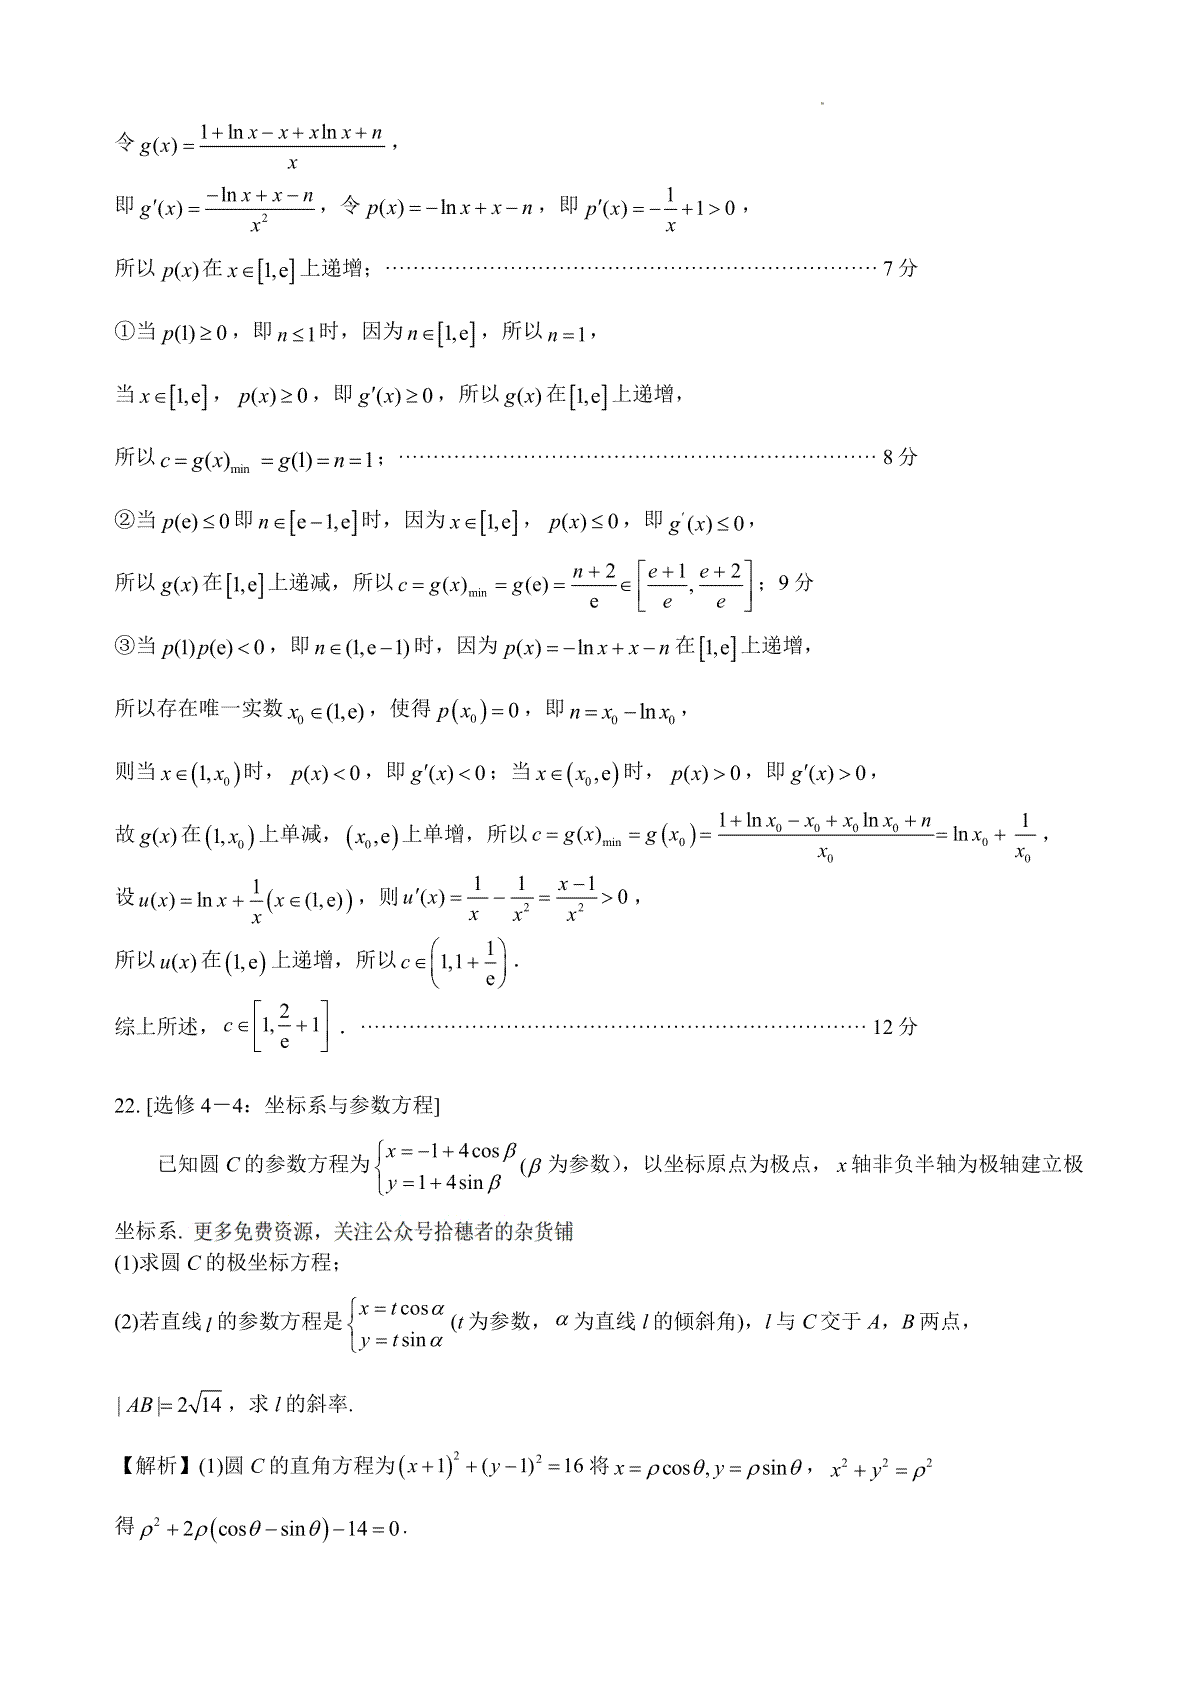 令 g(x) = (1+ln x−x+xln x+n)/x ，
即 g′(x) = (−ln x+x−n)/x² ，令 p(x) = −ln x+x−n ，即 p′(x) = −1/x+1>0 ，
所以 p(x) 在 x∈[1,e] 上递增；………………………………………………………… 7 分
①当 p(1)≥0 ，即 n≤1时，因为 n∈[1,e] ，所以 n=1，
当 x∈[1,e] ， p(x)≥0 ，即 g′(x)≥0 ，所以 g(x) 在[1,e]上递增，
所以 c=g(x)min =g(1)=n=1；………………………………………………………… 8 分
②当 p(e)≤0 即 n∈[e−1,e]时，因为 x∈[1,e] ， p(x)≤0 ，即 g′(x)≤0 ，
所以 g(x) 在[1,e]上递减，所以 c=g(x)min =g(e)= (n+2)/e ∈[(e+1)/e , (e+2)/e]；9 分
③当 p(1)p(e)<0 ，即 n∈(1,e−1) 时，因为 p(x)=−ln x+x−n 在[1,e]上递增，
所以存在唯一实数 x₀∈(1,e) ，使得 p(x₀)=0 ，即 n=x₀−ln x₀ ，
则当 x∈(1,x₀)时， p(x)<0 ，即 g′(x)<0 ；当 x∈(x₀,e) 时， p(x)>0 ，即 g′(x)>0 ，
故 g(x) 在 (1,x₀) 上单减， (x₀,e) 上单增，所以 c=g(x)min =g(x₀)= (1+ln x₀−x₀+x₀ln x₀+n)/x₀ =ln x₀+ 1/x₀ ，
设 u(x)=ln x+ 1/x (x∈(1,e)) ，则 u′(x)= 1/x − 1/x² = (x−1)/x² >0 ，
所以 u(x) 在 (1,e) 上递增，所以 c∈(1,1+1/e) .
综上所述， c∈[1, 2/e+1] . ………………………………………………………… 12 分
22. [选修 4－4：坐标系与参数方程]
已知圆 C 的参数方程为 {x=−1+4cosβ y=1+4sinβ (β 为参数），以坐标原点为极点， x 轴非负半轴为极轴建立极
坐标系. 更多免费资源，关注公众号拾穗者的杂货铺
(1)求圆 C 的极坐标方程；
(2)若直线 l 的参数方程是 {x=tcosα y=tsinα (t 为参数， α 为直线 l 的倾斜角)，l 与 C 交于 A，B 两点，
|AB|=2√14 ，求 l 的斜率.
【解析】(1)圆 C 的直角方程为 (x+1)²+(y−1)²=16 将 x=ρcosθ, y=ρsinθ ， x²+y²=ρ²
得 ρ²+2ρ(cosθ−sinθ)−14=0 .